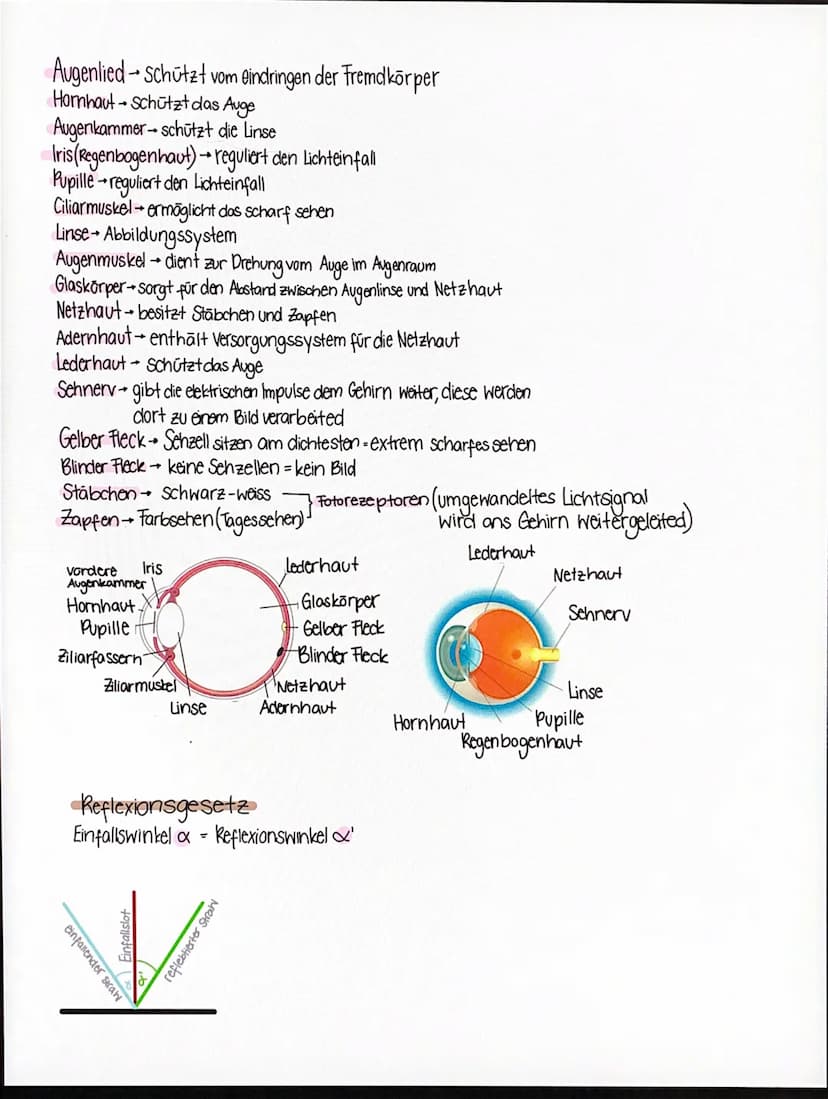 Augenlied → schützt vom eindringen der Fremdkörper
Hornhaut → schützt das Auge
Augenkammer → schützt die Linse
Iris (Regenbogenhaut) → reguliert den Lichteinfall
Pupille → reguliert den Lichteinfall
Ciliarmuskel → ermöglicht das scharf sehen
Linse → Abbildungssystem
Augenmuskel → dient zur Drehung vom Auge im Augenraum
Glaskörper → sorgt für den Abstand zwischen Augenlinse und Netzhaut
Netzhaut → besitzt Stäbchen und Zapfen
Adernhaut → enthält Versorgungssystem für die Netzhaut
Lederhaut → schützt das Auge
Sehnerv → gibt die elektrischen Impulse dem Gehirn weiter, diese werden
dort zu einem Bild verarbeited
Gelber Fleck → Sehzell sitzen am dichtesten = extrem scharfes sehen
Blinder Fleck → keine Sehzellen = kein Bild
Stäbchen → schwarz-weiss } Fotorezeptoren (umgewandeltes Lichtsignal
Zapfen → Farbsehen (Tagessehen) wird ans Gehirn weitergeleited)
vordere
Augenkammer
Iris
Hornhaut
Pupille
Ziliarfassern
Ziliarmuskel
Linse
Lederhaut
Glaskörper
Gelber Fleck
Blinder Fleck
Netzhaut
Adernhaut
Lederhaut
Netzhaut
Sehnerv
Linse
Pupille
Regenbogenhaut
Hornhaut
Reflexionsgesetz
Einfallswinkel α = Reflexionswinkel α'
einfallender Strahl
Einfallslot
reflektierter Strahl
α
α'